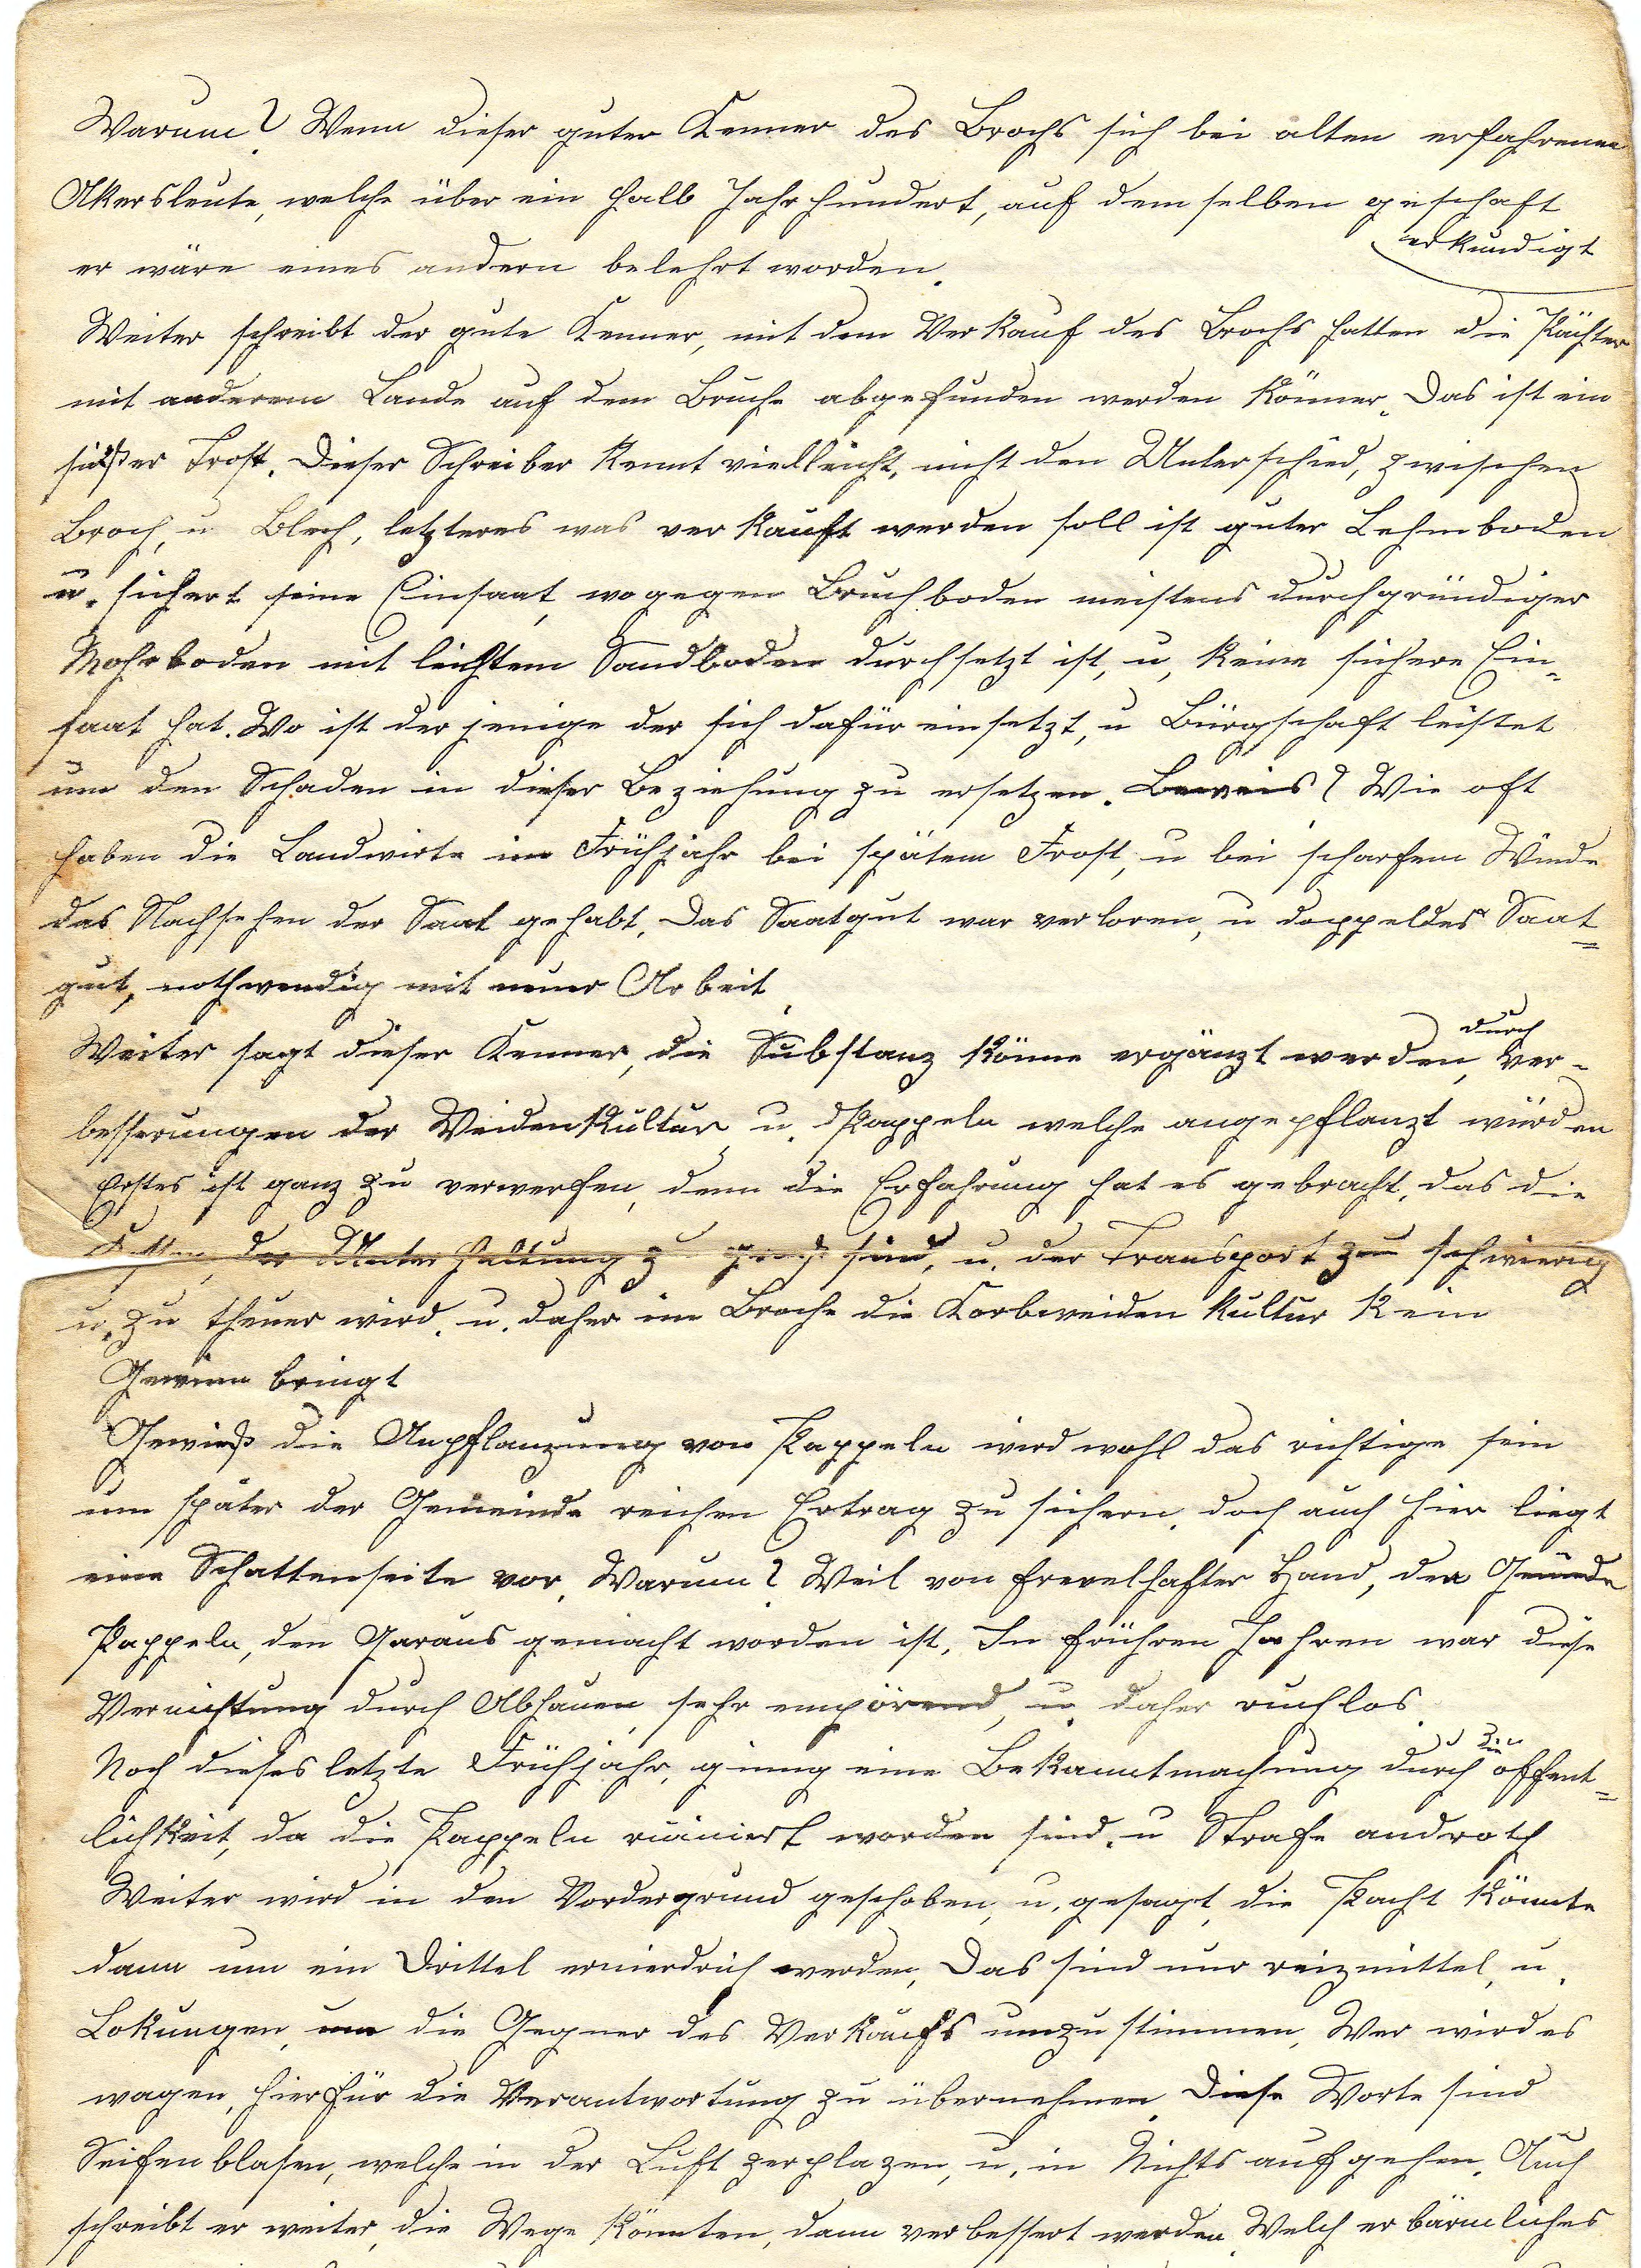 Warum? Wenn dieser guter Kenner des Brochs sich bei alten erfahrenen
Akersleute, welche über ein halb Jahrhundert, auf dem selben geschaft
erkundigt
er wäre eines andern belehrt worden.
Weiter schreibt der gute Kenner, mit dem Verkauf des Brochs hatten die Pächter
mit anderem Lande auf dem Bruche abgefunden werden könner. Das ist ein
süßer Trost. Dieser Schreiber kennt vielleicht, nicht den Unterschied, zwischen
Broch, u Blech, letzteres was verkauft werden soll ist guter Lehmboden
u. sichert seine Einsaat, wogegen Bruchboden meistens durchgründiger
Mohrboden mit leichtem Sandboden durchsetzt ist, u, keine sichere Ein-
saat hat. Wo ist der jenige der sich dafür einsetzt, u Bürgschaft leistet
um den Schaden in dieser Beziehung zu ersetzen. Beweis? Wie oft
haben die Landwirte im Frühjahr bei spätem Frost, u bei scharfem Winde
das Nachsehen der Saat gehabt. Das Saatgut war verloren, u doppeldes Saat-
gut, nothwendig mit neuer Arbeit
Weiter sagt dieser Kenner, die Substanz könne ergänzt werden, durch Ver-
besserungen der Weidenkultur u. Pappeln welche angepflanzt würden
Erstes ist ganz zu verwerfen, denn die Erfahrung hat es gebracht, das die
der Unterhaltung sind, u. der Transport zu schwierig
u. zu theuer wird. u. daher im Broche die Korbweiden kultur kein
Gewinn bringt
Gewieß die Anpflanzung von Pappeln wird wohl das richtige sein
um später der Gemeinde reichen Ertrag zu sichern, doch auch hier liegt
eine Schattenseite vor, Warum? Weil von frevelhafter Hand, der
Pappeln, den Garaus gemacht worden ist. In frühren Jahren war diese
Vernichtung durch Abhauen sehr empörend, u. daher ruchlos.
Noch dieses letzte Frühjahr, gieng eine Bekanntmachung durch die offent-
lichkeit, da die Pappeln ruiniert worden sind. u Strafe androth
Weiter wird in den Vordergrund geschoben, u, gesagt, die Pacht könnte
dann um ein Drittel ernierdrich werden, Das sind nur reizmittel, u.
Lokungen, um die Gegner des Verkaufs umzustimmen, Wer wird es
wagen, hierfür die Verantwortung zu übernehmen. Diese Worte sind
Seifenblasen, welche in der Luft zerplazen, u, in Nichts aufgehen. Auch
schreibt er weiter, die Wege könnten, dann verbessert werden Welch erbärmliches